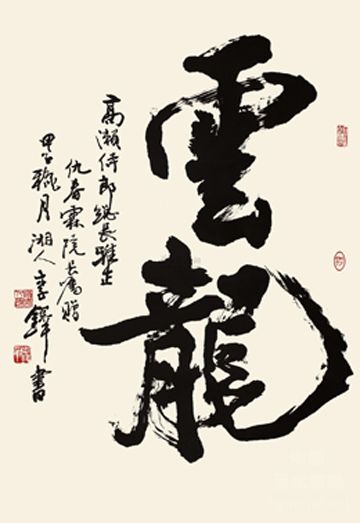 雲龍
高瀨侍郎總長雅正
仇春霖院長屬贈
甲子穐月湘人李鐸書